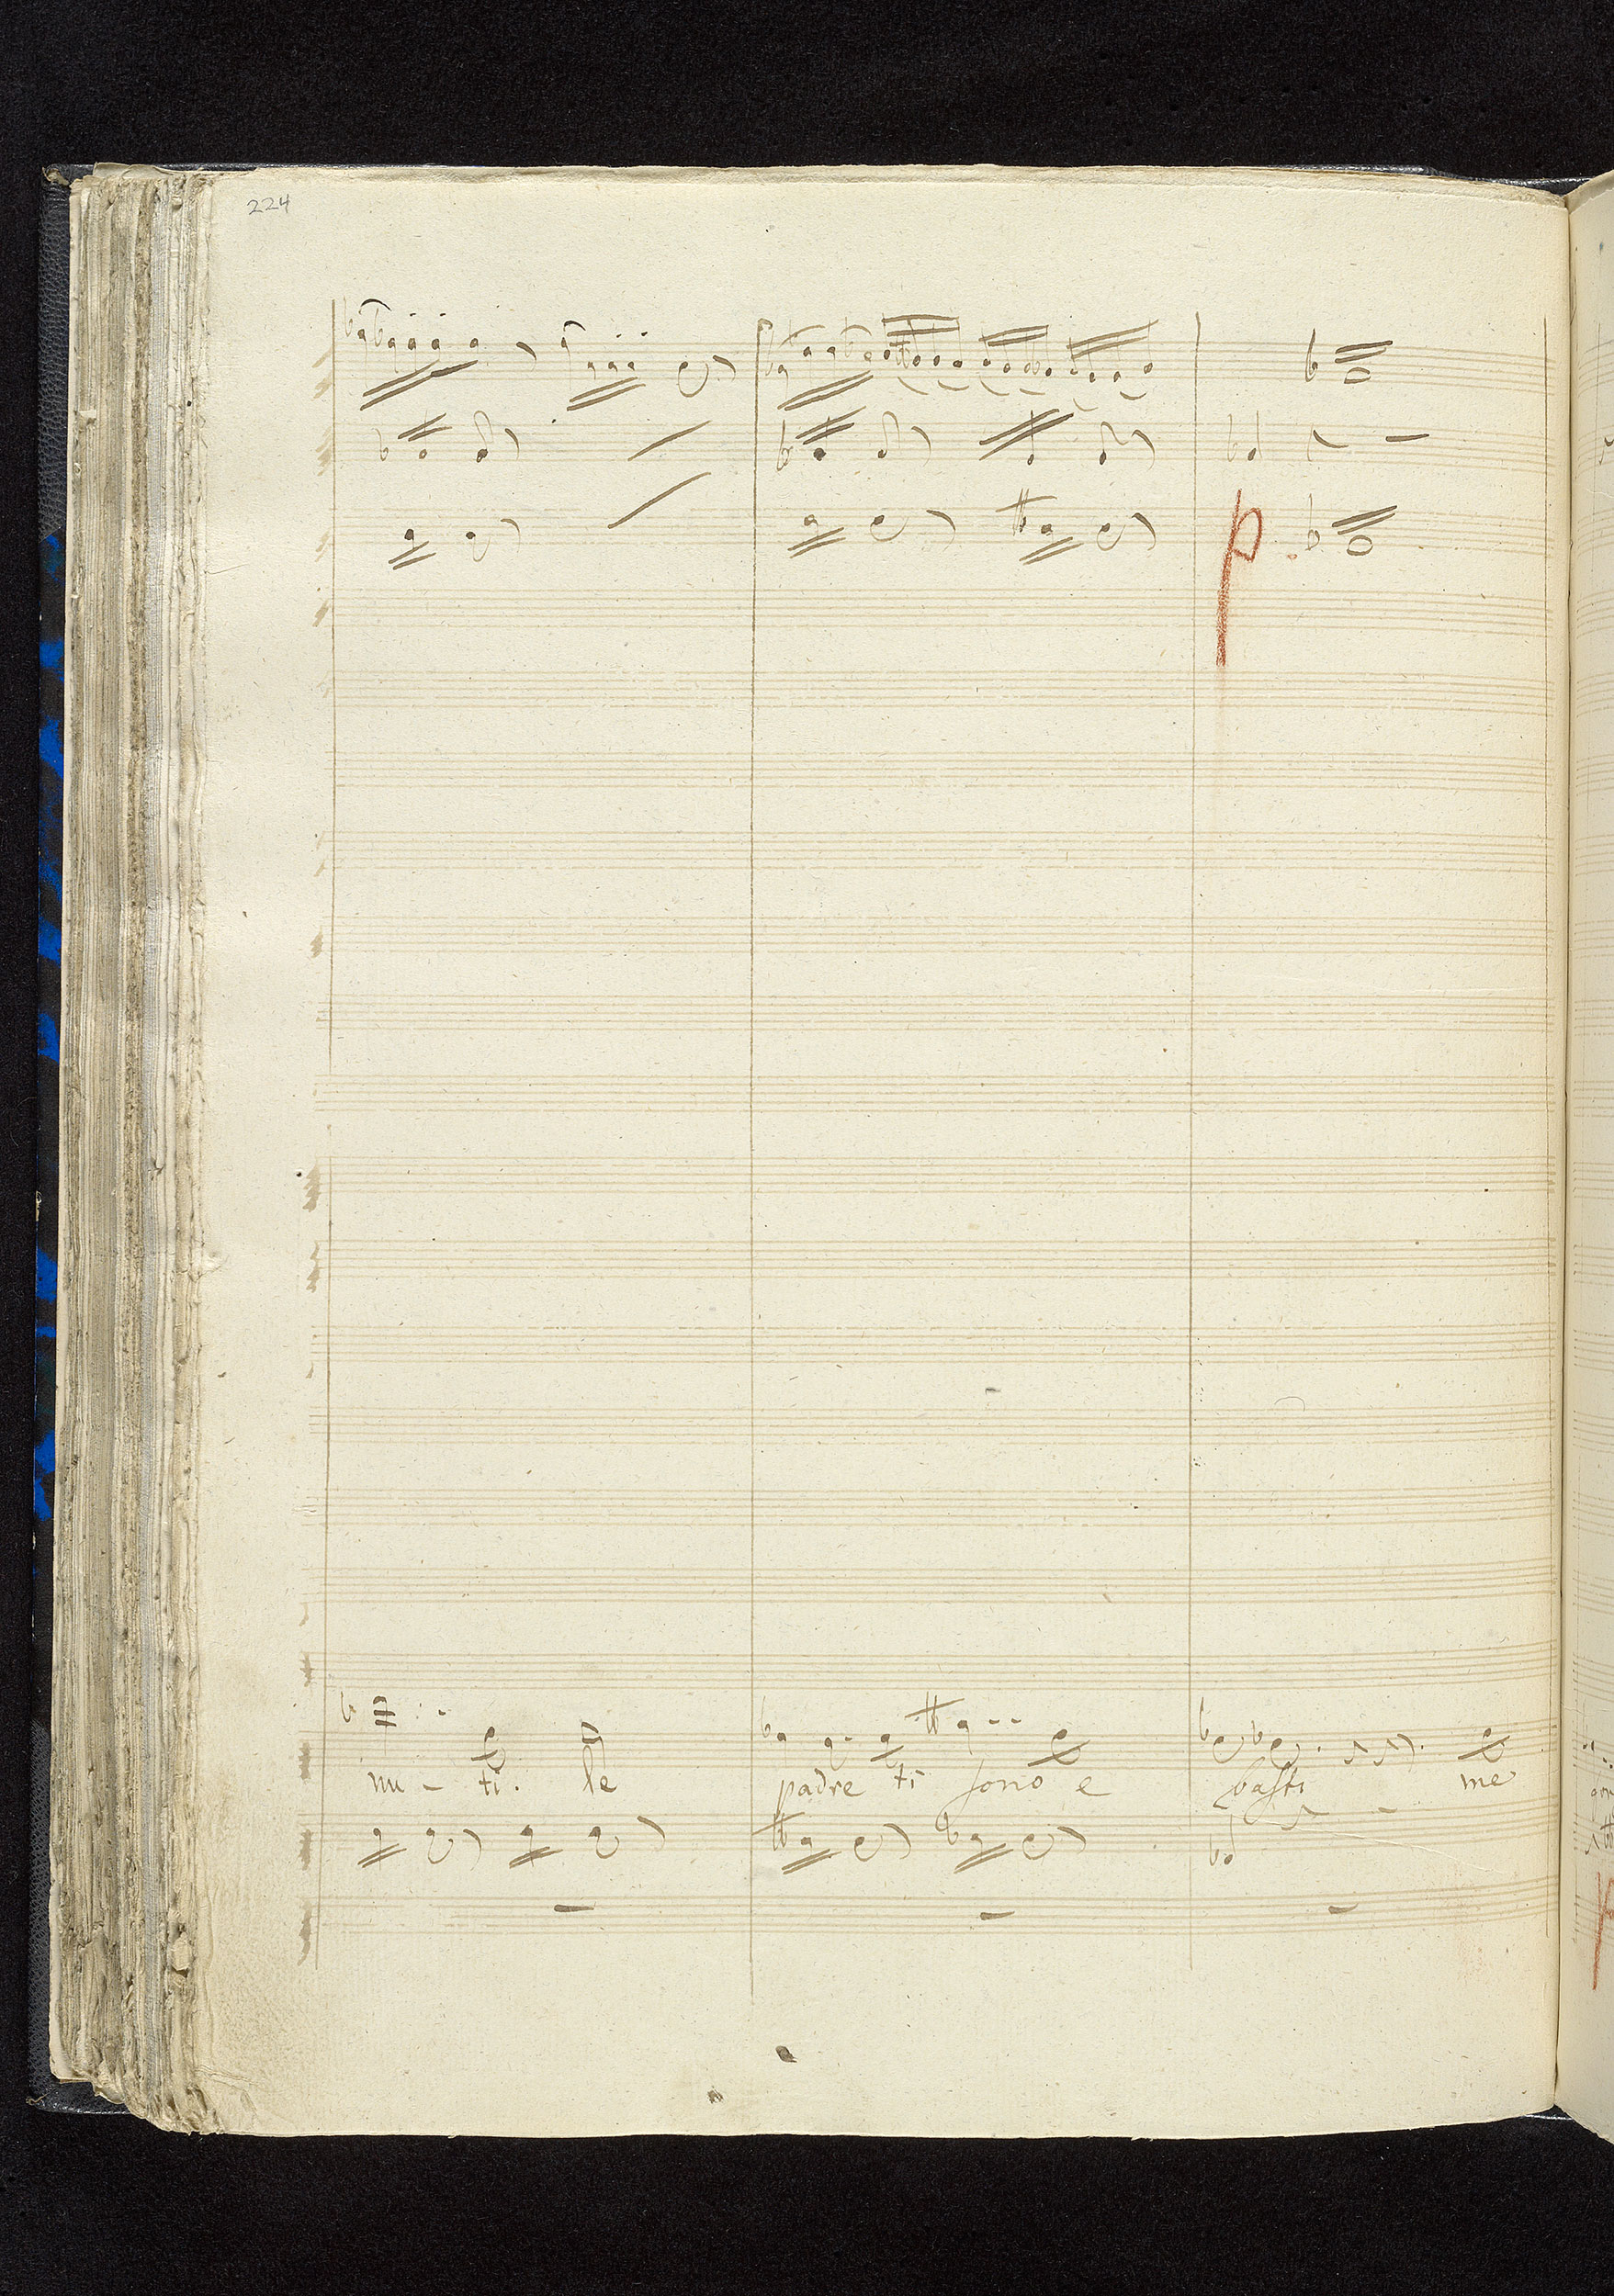 224
p
nu - ti. le padre ti sono e basti me